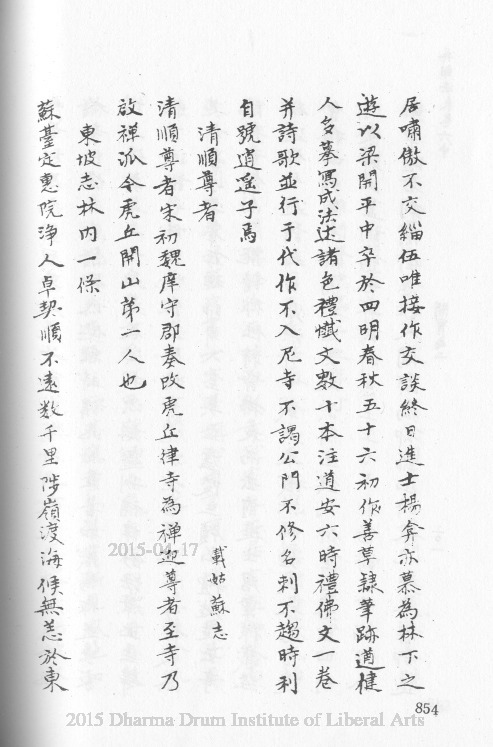 居嘯傲不交緇伍唯接作交談終日進士楊弇亦慕為林下之
遊以梁開平中卒於四明春秋五十六初作善草隸筆跡遒健
人多摹寫成法述諸色禮懺文數十本注道安六時禮佛文一卷
并詩歌並行于代作不入尼寺不謁公門不修名刺不趨時利
自號逍遥子焉
清順尊者
載姑蘇志
清順尊者宋初魏庠守郡奏改虎丘律寺為禪迎尊者至寺乃
啟禪派今虎丘開山第一人也
東坡志林內一條
蘇臺定惠院淨人卓契順不遠数千里陟嶺渡海候無恙於東
854
2015-04-17
2015 Dharma Drum Institute of Liberal Arts